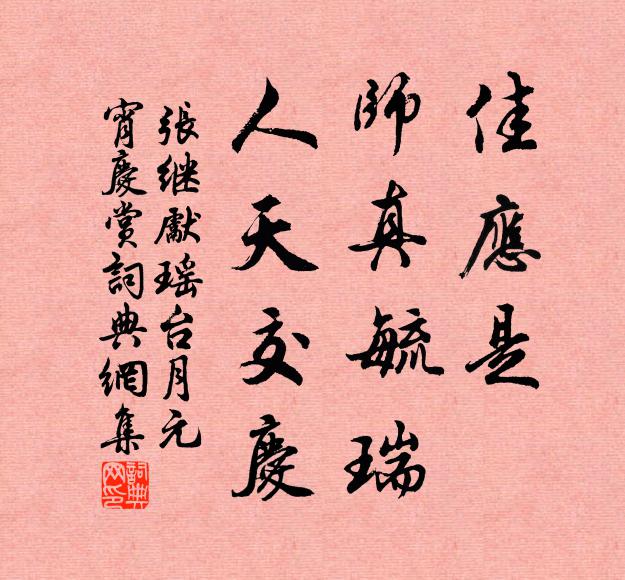 佳應是
師真毓瑞
人天交慶
張继獻瑶台月元
宵慶賞詞典網集
詞典网印